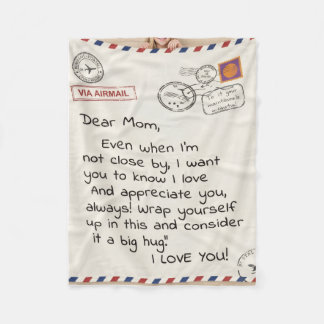 VIA AIRMAIL
Dear Mom,
Even when I'm
not close by, I want
you to know I love
And appreciate you,
always! Wrap yourself
up in this and consider
it a big hug."
I LOVE YOU!